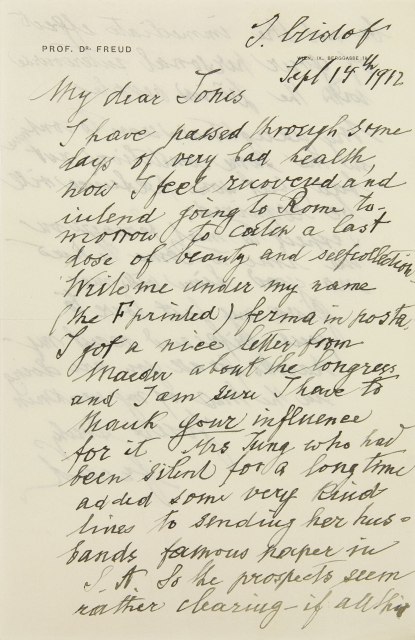 S. Cristof
PROF. DR. FREUD
WIEN, IX. BERGGASSE 19
Sept 14th 1912
My dear Jones
I have passed through some
days of very bad health,
now I feel recovered and
intend going to Rome to-
morrow to catch a last
dose of beauty and selfcollection.
Write me under my name
(the F printed) ferma in posta.
I got a nice letter from
Maeder about the Congress
and I am sure I have to
thank your influence
for it. Mrs Jung who had
been silent for a long time
added some very kind
lines to sending her hus-
bands famous paper in
So the prospects seem
rather clearing - if all this